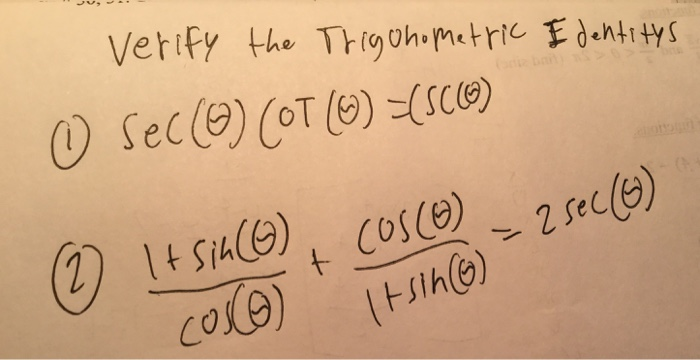 Verify the Trigonometric Identitys
① Sec(θ) COT(θ) = CSC(θ)
② 1+sin(θ)/cos(θ) + cos(θ)/1+sin(θ) = 2 sec(θ)